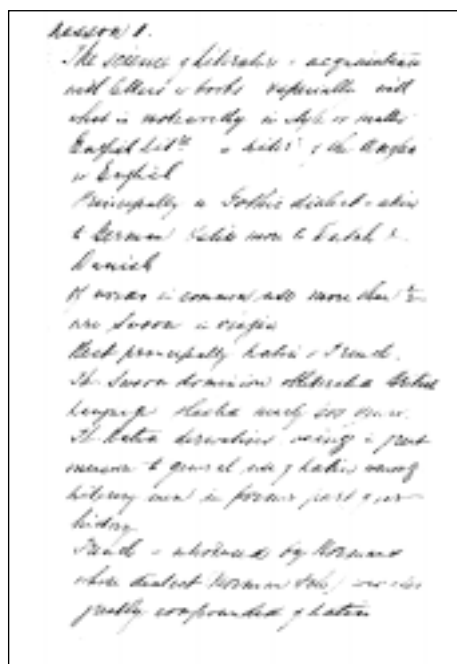 Lesson 1.
The science of literature - acquaintance
with letters or books especially with
what is noteworthy in style or matter
English Litre the Anglo
or English
Principally a Gothic dialect - akin
to German more to Dutch &
Danish
Of words in common use more than ½
are Saxon in origin
Rest principally Latin & French.
The Saxon dominion obliterated British
language nearly
The Latin derivations owing in great
measure to general use of Latin among
literary men in former part of our
history
French - introduced by Normans
whose dialect Norman
greatly compounded of Latin